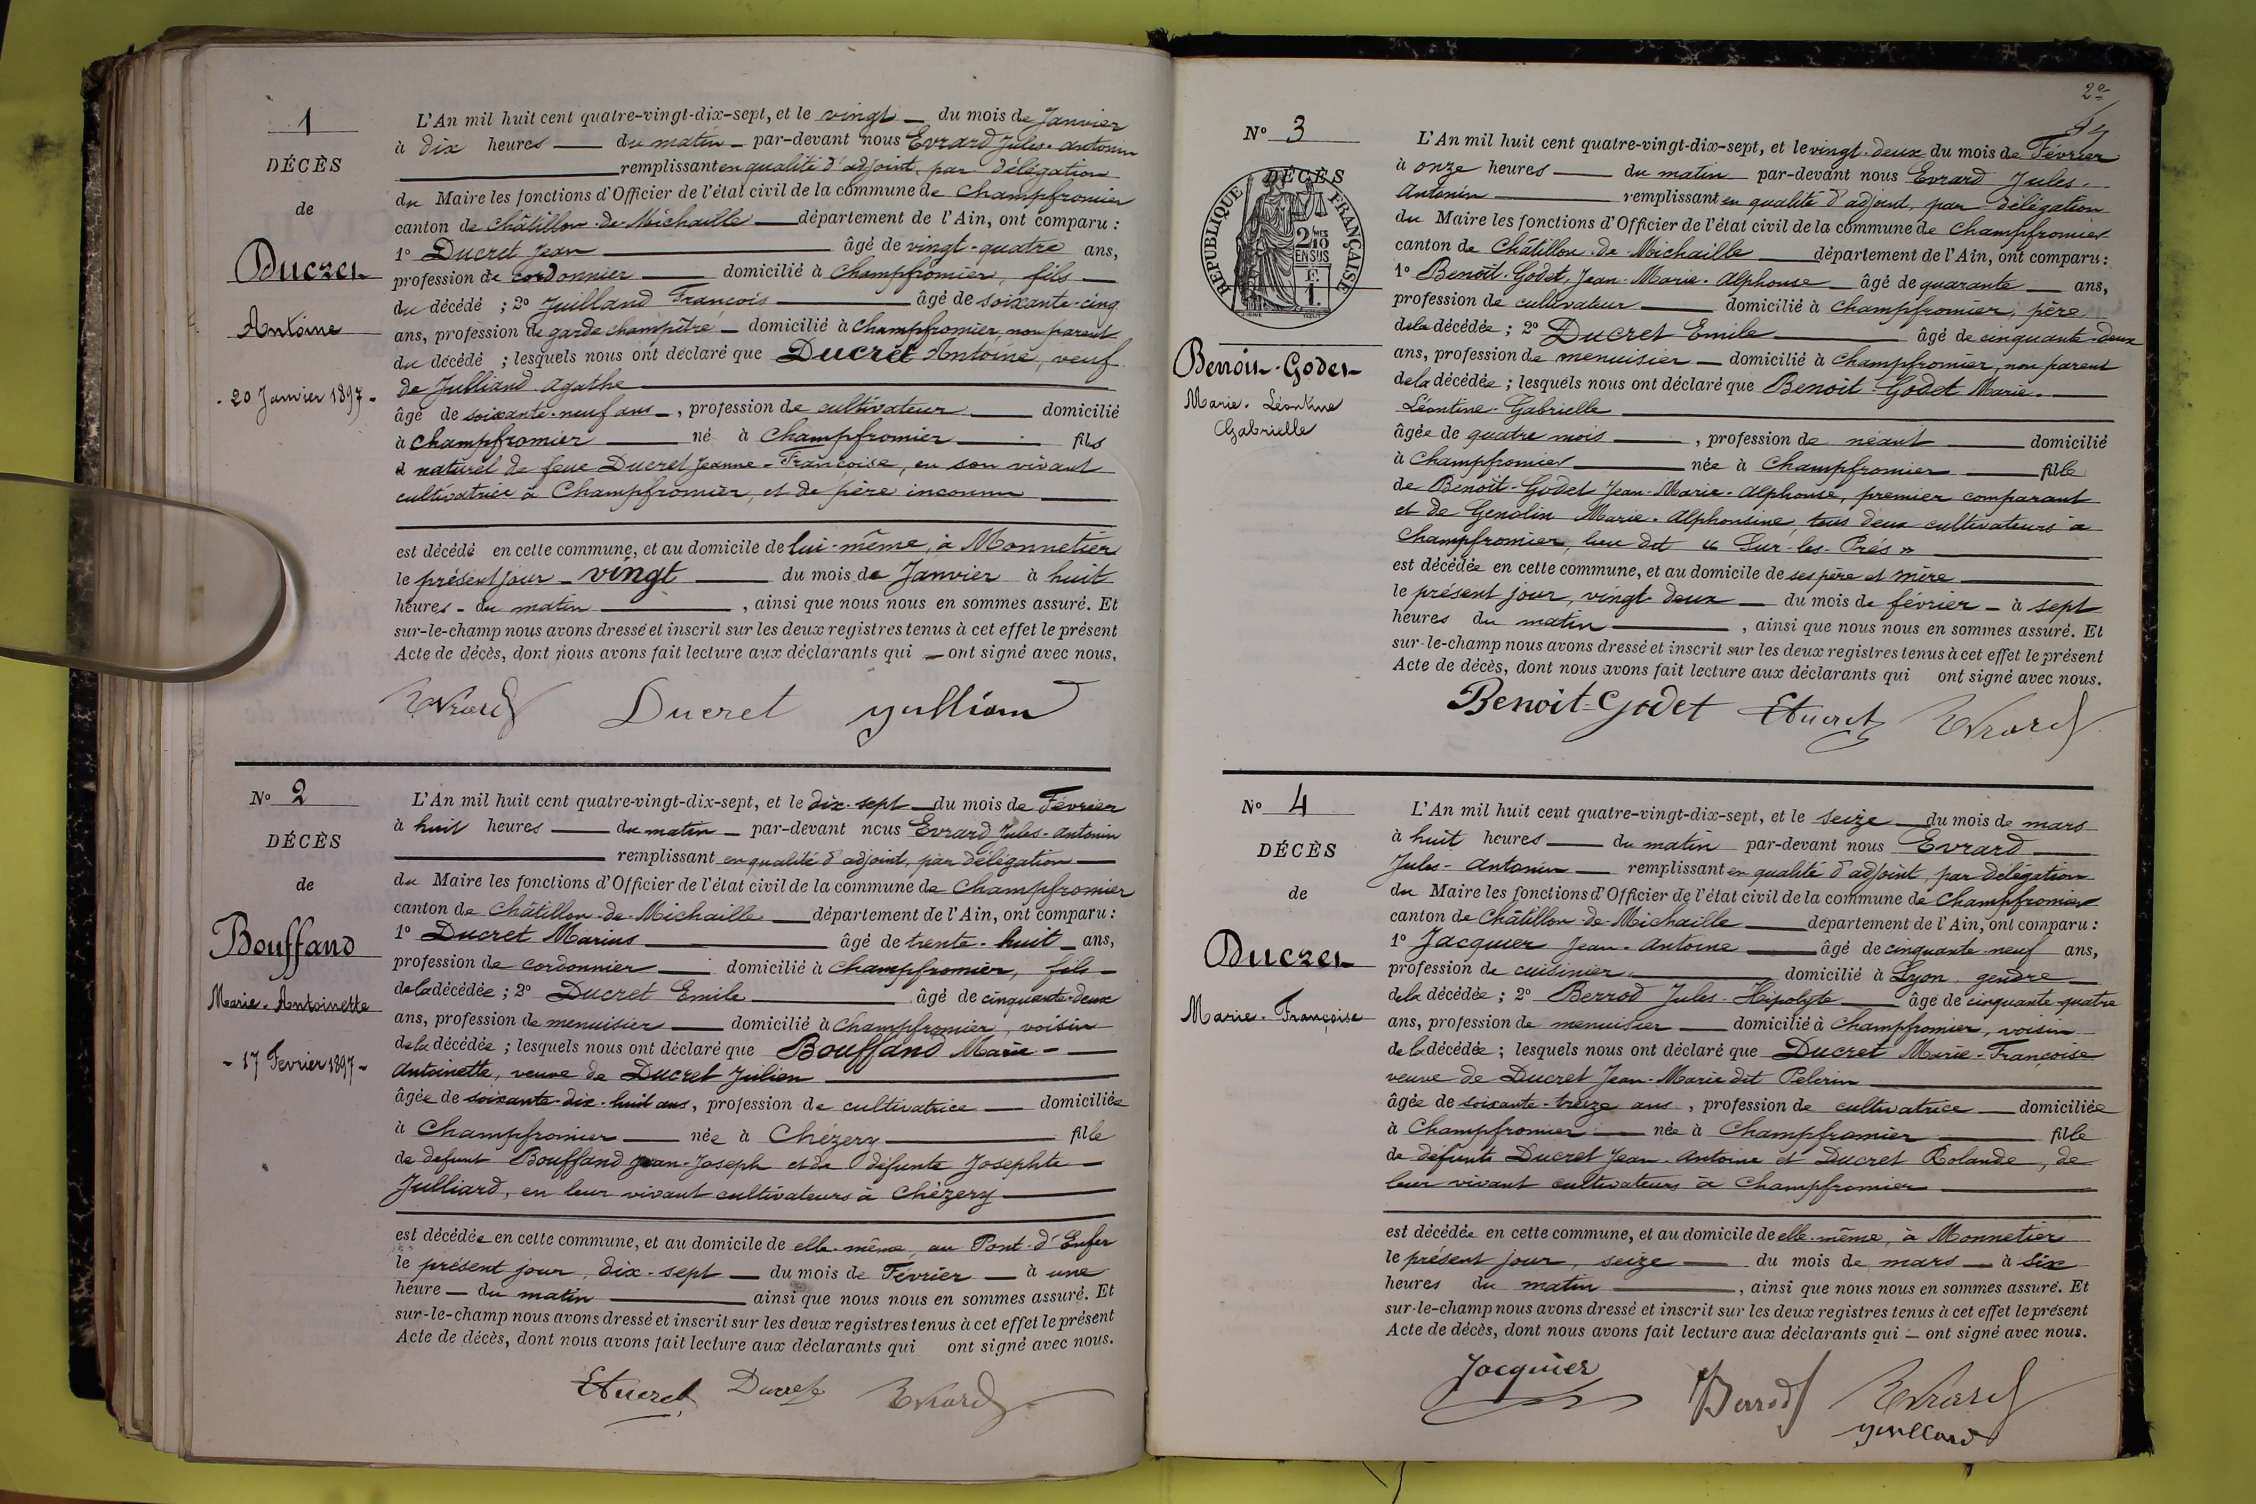 1
DÉCÈS
de
Ducret
Antoine
- 20 Janvier 1897 -
L'An mil huit cent quatre-vingt-dix-sept, et le vingt — du mois de Janvier
à dix heures — du matin — par-devant nous Evrard Jules-Antonin
remplissant en qualité d'adjoint, par délégation
du Maire les fonctions d'Officier de l'état civil de la commune de Champfromier
canton de Châtillon-de-Michaille — département de l'Ain, ont comparu :
1° Ducret Jean — âgé de vingt-quatre ans,
profession de cordonnier — domicilié à Champfromier, fils —
du décédé ; 2° Juilland François — âgé de soixante-cinq
ans, profession de garde champêtre — domicilié à Champfromier, non parent
du décédé ; lesquels nous ont déclaré que Ducret Antoine, veuf
de Julliand Agathe —
âgé de soixante-neuf ans —, profession de cultivateur — domicilié
à Champfromier — né à Champfromier — fils
naturel de feue Ducret Jeanne-Françoise, en son vivant
cultivatrice à Champfromier, et de père inconnu —
est décédé en cette commune, et au domicile de lui-même, à Monnetier
le présent jour — vingt — du mois de Janvier à huit
heures — du matin —, ainsi que nous nous en sommes assuré. Et
sur-le-champ nous avons dressé et inscrit sur les deux registres tenus à cet effet le présent
Acte de décès, dont nous avons fait lecture aux déclarants qui — ont signé avec nous.
Evrard Ducret Julliand
N° 2
DÉCÈS
de
Bouffand
Marie-Antoinette
- 17 Fevrier 1897 -
L'An mil huit cent quatre-vingt-dix-sept, et le dix-sept — du mois de Février
à huit heures — du matin — par-devant nous Evrard Jules-Antonin
remplissant en qualité d'adjoint, par délégation —
du Maire les fonctions d'Officier de l'état civil de la commune de Champfromier
canton de Châtillon-de-Michaille — département de l'Ain, ont comparu :
1° Ducret Marius — âgé de trente-huit — ans,
profession de cordonnier — domicilié à Champfromier, fils —
de la décédée ; 2° Ducret Emile — âgé de cinquante-deux
ans, profession de menuisier — domicilié à Champfromier, voisin
de la décédée ; lesquels nous ont déclaré que Bouffand Marie-
Antoinette, veuve de Ducret Julien —
âgée de soixante-dix-huit ans, profession de cultivatrice — domiciliée
à Champfromier — née à Chézery — fille
de defunt Bouffand Jean-Joseph et de défunte Josephte —
Julliard, en leur vivant cultivateurs à Chézery —
est décédée en cette commune, et au domicile de elle-même, au Pont-d'Enfer
le présent jour, dix-sept — du mois de Février — à une
heure — du matin — ainsi que nous nous en sommes assuré. Et
sur-le-champ nous avons dressé et inscrit sur les deux registres tenus à cet effet le présent
Acte de décès, dont nous avons fait lecture aux déclarants qui ont signé avec nous.
EDucret Ducret Evrard
2e
N° 3
DÉCÈS
RÉPUBLIQUE FRANÇAISE
2/10 EN SUS
F. 1.
Benoit-Godet
Marie-Léontine
Gabrielle
L'An mil huit cent quatre-vingt-dix-sept, et le vingt-deux du mois de Février
à onze heures — du matin par-devant nous Evrard Jules-
Antonin — remplissant en qualité d'adjoint, par délégation
du Maire les fonctions d'Officier de l'état civil de la commune de Champfromier
canton de Châtillon-de-Michaille — département de l'Ain, ont comparu :
1° Benoit-Godet, Jean-Marie-Alphonse — âgé de quarante — ans,
profession de cultivateur — domicilié à Champfromier, père
de la décédée ; 2° Ducret Emile — âgé de cinquante-deux
ans, profession de menuisier — domicilié à Champfromier, non parent
de la décédée ; lesquels nous ont déclaré que Benoit-Godet Marie-
Léontine-Gabrielle —
âgée de quatre mois —, profession de néant — domicilié
à Champfromier — née à Champfromier — fille
de Benoit-Godet Jean-Marie-Alphonse, premier comparant
et de Genolin Marie-Alphonsine, tous deux cultivateurs à
Champfromier, lieu dit « Sur-les-Prés » —
est décédée en cette commune, et au domicile de ses père et mère —
le présent jour, vingt-deux — du mois de février — à sept
heures du matin —, ainsi que nous nous en sommes assuré. Et
sur-le-champ nous avons dressé et inscrit sur les deux registres tenus à cet effet le présent
Acte de décès, dont nous avons fait lecture aux déclarants qui ont signé avec nous.
Benoit-Godet EDucret Evrard
N° 4
DÉCÈS
de
Ducret
Marie-Françoise
L'An mil huit cent quatre-vingt-dix-sept, et le seize — du mois de mars
à huit heures — du matin par-devant nous Evrard —
Jules-Antonin — remplissant en qualité d'adjoint, par délégation
du Maire les fonctions d'Officier de l'état civil de la commune de Champfromier
canton de Châtillon-de-Michaille — département de l'Ain, ont comparu :
1° Jacquier Jean-Antoine — âgé de cinquante-neuf ans,
profession de cuisinier — domicilié à Lyon, gendre —
de la décédée ; 2° Berrod Jules-Hipolyte — âgé de cinquante-quatre
ans, profession de menuisier — domicilié à Champfromier, voisin
de la décédée ; lesquels nous ont déclaré que Ducret Marie-Françoise
veuve de Ducret Jean-Marie dit Pelerin —
âgée de soixante-treize ans, profession de cultivatrice — domiciliée
à Champfromier — née à Champfromier — fille
de défunts Ducret Jean-Antoine et Ducret Rolande, de
leur vivant cultivateurs à Champfromier —
est décédée en cette commune, et au domicile de elle-même, à Monnetier
le présent jour, seize — du mois de mars — à six
heures du matin —, ainsi que nous nous en sommes assuré. Et
sur-le-champ nous avons dressé et inscrit sur les deux registres tenus à cet effet le présent
Acte de décès, dont nous avons fait lecture aux déclarants qui — ont signé avec nous.
Jacquier Berrod Evrard